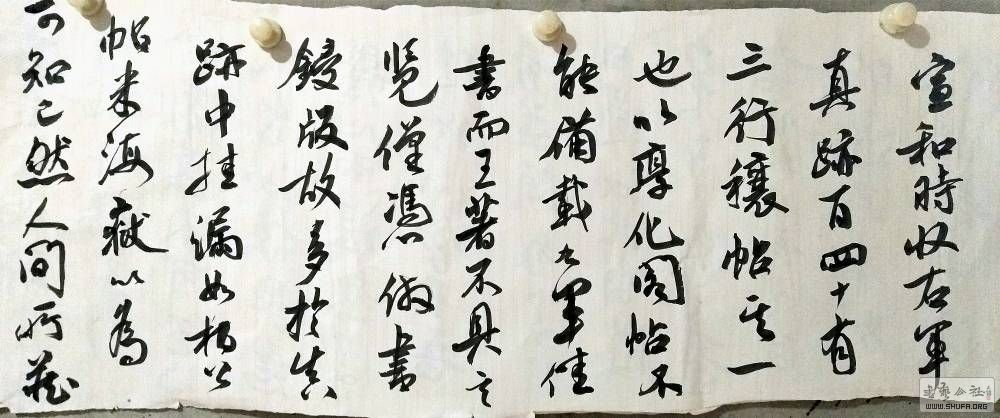 宣和時収右軍
真跡百四十有
三行穰帖其一
也以淳化閣帖不
能備載右軍佳
書而王著不具玄
覽僅憑倣書
鋟版故多於真
跡中挂漏如桓公
帖米海嶽以為
可知已然人間所藏
WWW.SHUFA.ORG